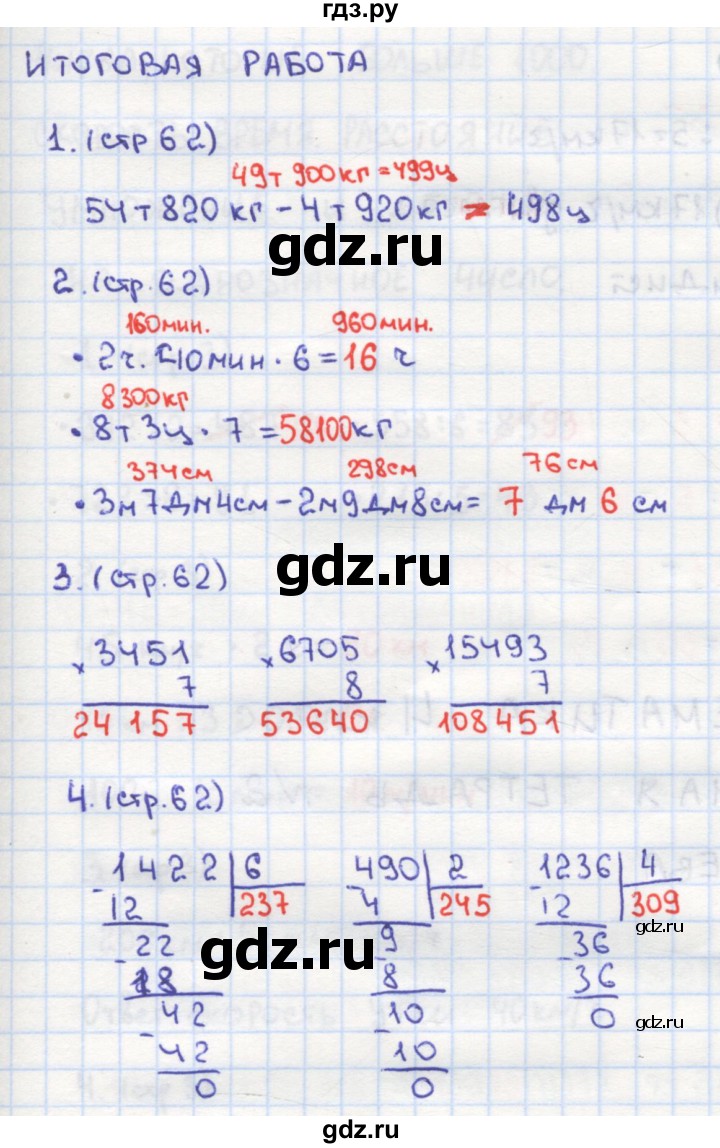 гдз.ру
ИТОГОВАЯ РАБОТА
1. (стр 62)
49т 900кг = 499ц
54т 820 кг - 4т 920кг ≠ 498ц
gdz.ru
2. (стр. 62)
160мин. 960мин.
• 2ч. 40мин · 6 = 16 ч
8300кг
• 8т 3ц · 7 = 58100кг
374см 298см 76см
• 3м 7дм 4см - 2м 9дм 8см = 7 дм 6 см
gdz.ru
3. (стр. 62)
× 3451 × 6705 × 15493
7 8 7
24157 53640 108451
4. (стр. 62)
1422 6 490 2 1236 4
- 12 237 - 4 245 - 12 309
- 22 - 9 - 36
18 8 36
- 42 - 10 0
42 10
0 0
gdz.ru
gdz.ru
gdz.ru